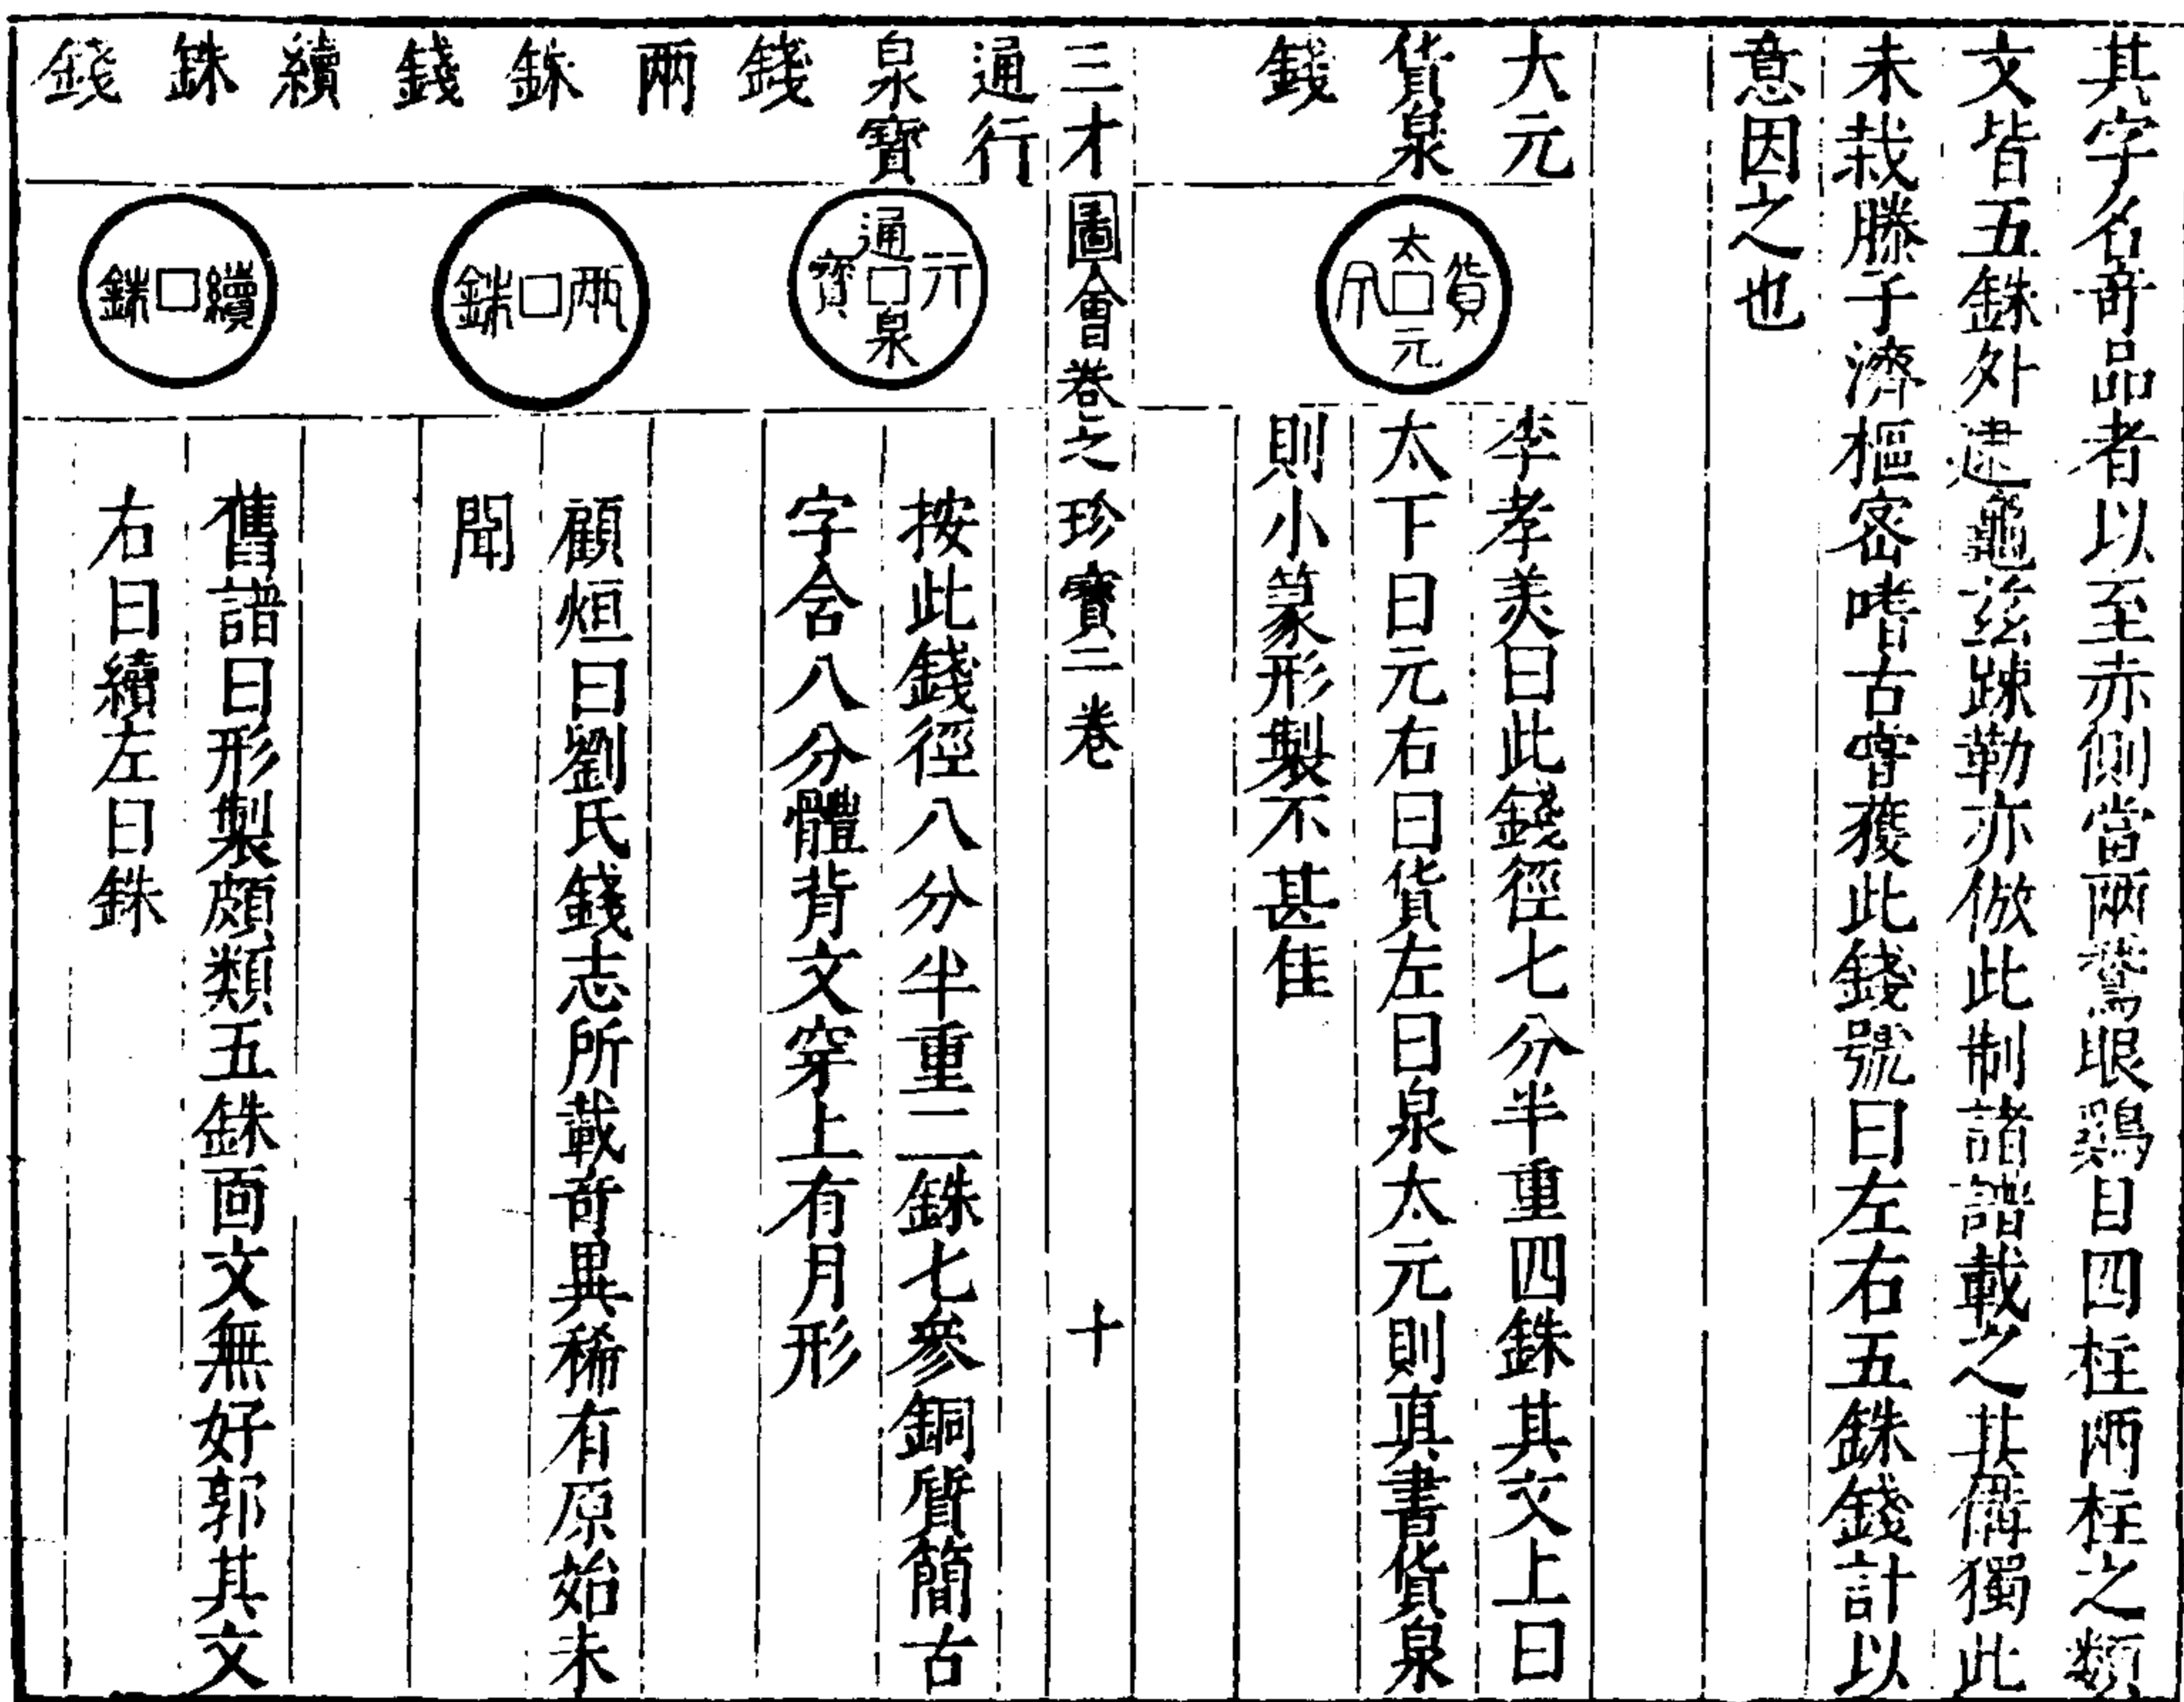 其字名奇品者以至赤側當兩鵞眼鷄目四柱兩柱之類
文皆五銖外逮龜玆踈勒亦倣此制諸譜載之其僃獨此
未栽滕子濟樞密嗜古嘗獲此錢號曰左右五銖錢計以
意因之也
大元
貨泉
錢
太元貨
李孝美曰此錢徑七分半重四銖其文上曰
太下曰元右曰貨左曰泉太元則眞書貨泉
則小篆形製不甚佳
三才圖會 卷之 珍寶二卷 十
通行
泉寶
錢
通泉行寶
按此錢徑八分半重二銖七參銅質簡古
字含八分體背文穿上有月形
兩
銖
錢
兩銖
顧烜曰劉氏錢志所載奇異稀有原始未
聞
續
銖
錢
續銖
舊譜曰形製頗類五銖面文無好郭其文
右曰續左曰銖